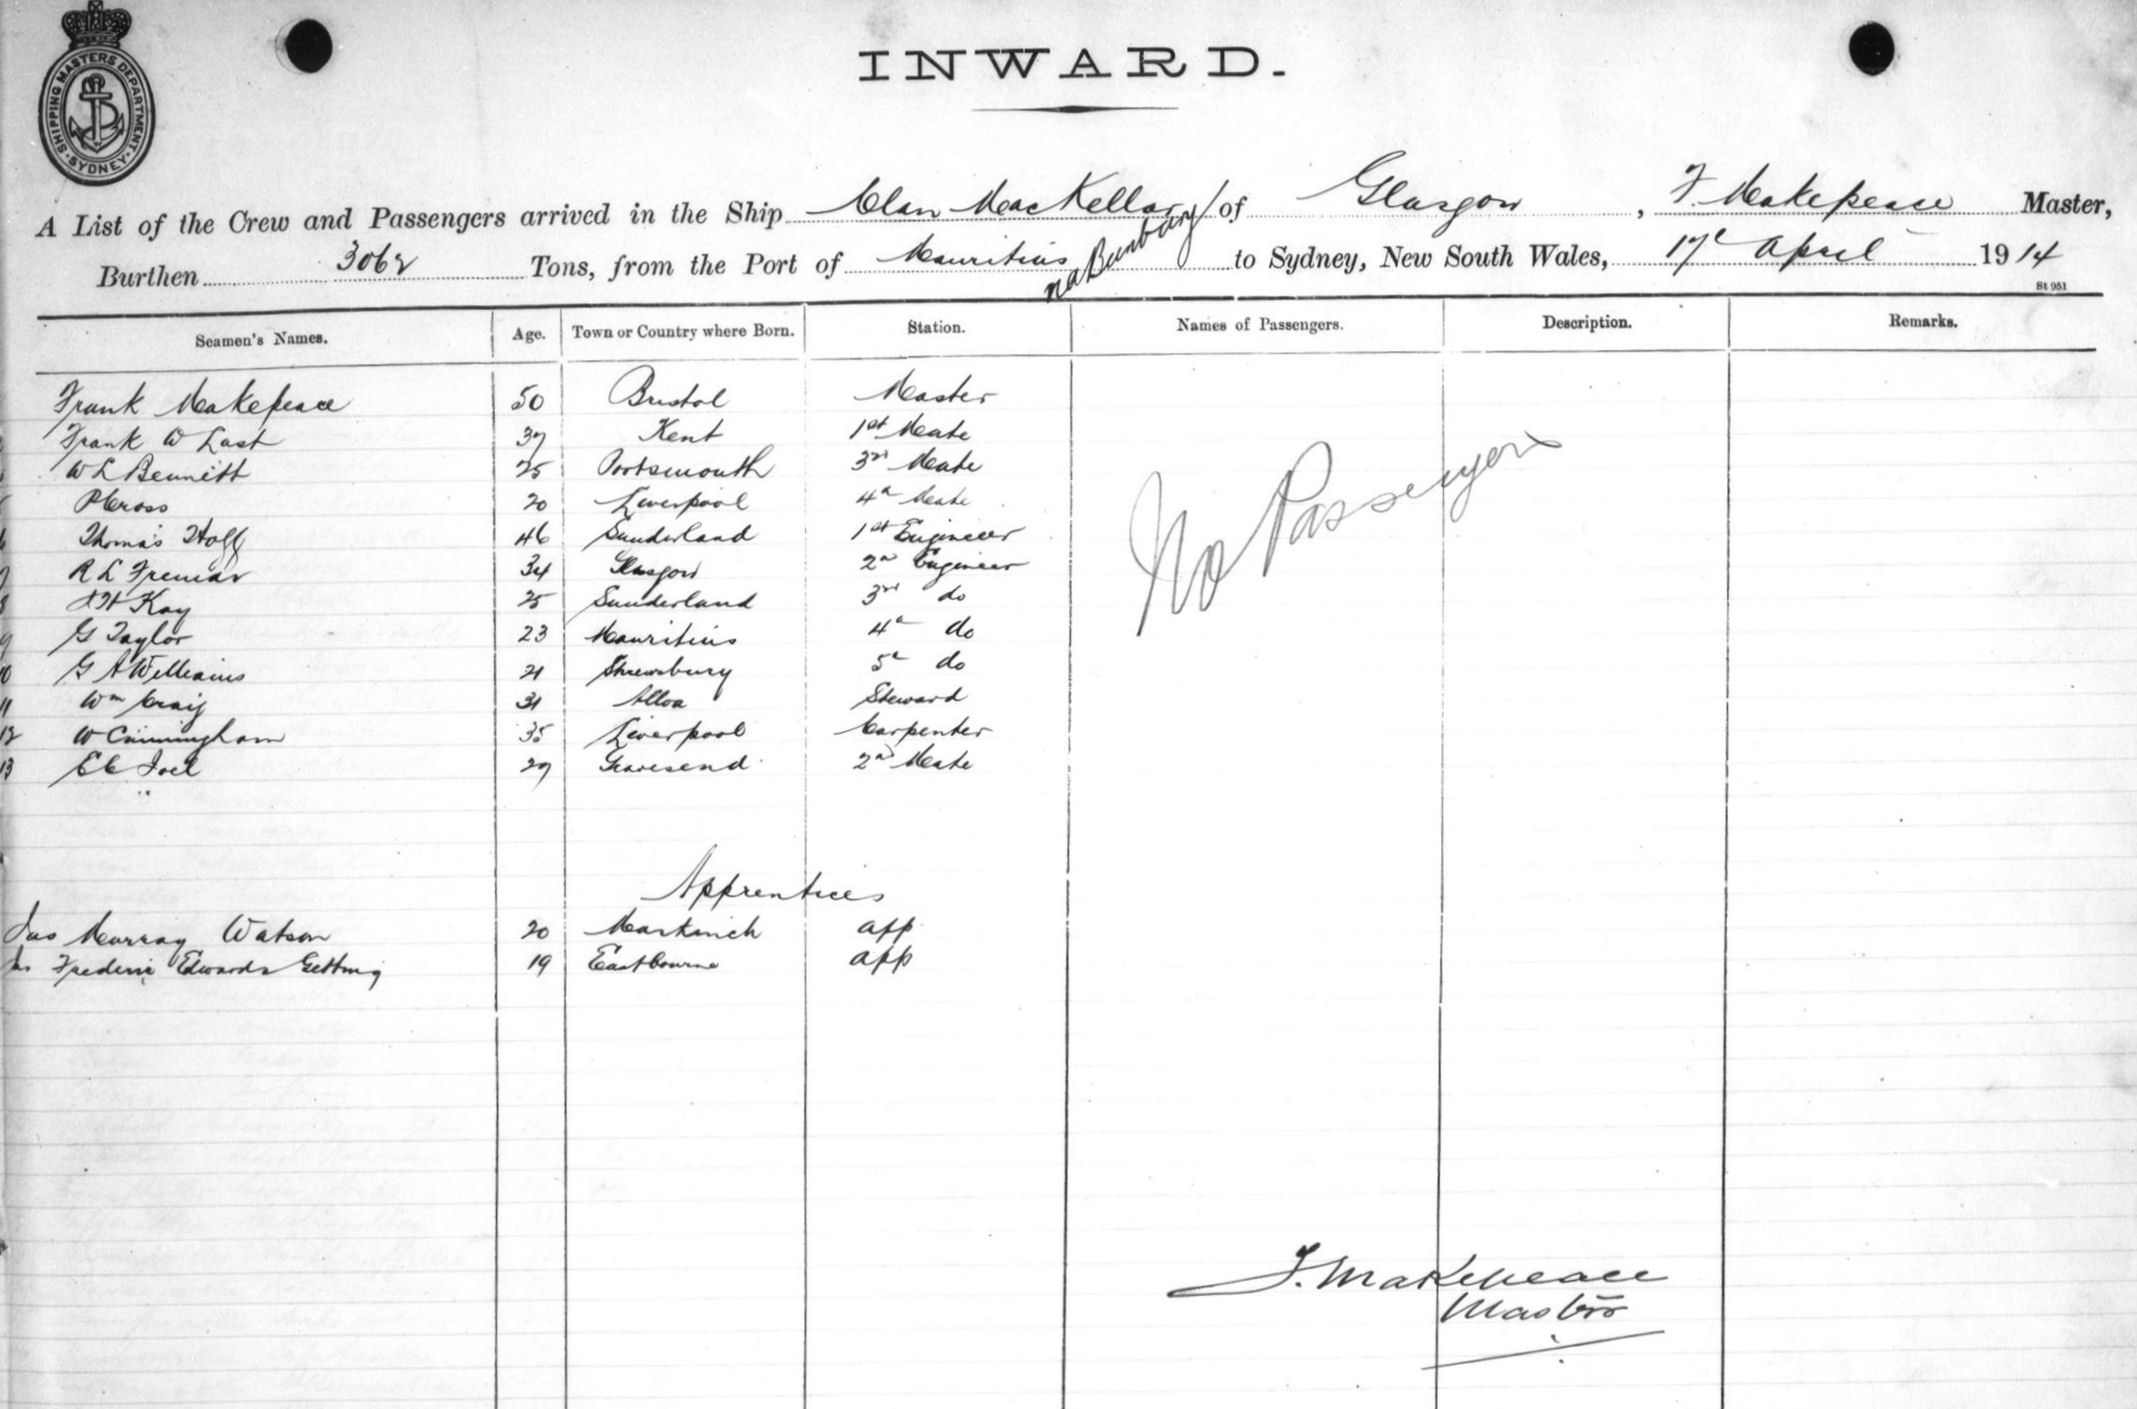 SHIPPING MASTERS DEPARTMENT. SYDNEY.
INWARD.
A List of the Crew and Passengers arrived in the Ship Clan MacKellar of Glasgow, F. Makepeace Master,
Burthen 3062 Tons, from the Port of Mauritius via Bunbury to Sydney, New South Wales, 17 April 1914
St 951
Seamen's Names. Age. Town or Country where Born. Station. Names of Passengers. Description. Remarks.
Frank Makepeace 50 Bristol Master
Frank W Last 37 Kent 1st Mate
W L Bennett 25 Portsmouth 3rd Mate
P Cross 20 Liverpool 4th Mate
6 Thomas 46 Sunderland 1st Engineer
7 R L 34 Glasgow 2nd Engineer
8 Kay 25 Sunderland 3rd do
9 G Taylor 23 Mauritius 4th do
10 G A Williams 21 Shrewsbury 5th do
11 Wm Craig 31 Alloa Steward
12 W Cunningham 35 Liverpool Carpenter
13 E C Joel 29 Gravesend 2nd Mate
No Passengers
Apprentices
Jas Murray Watson 20 Markinch app
Frederic Edwards Getting 19 Eastbourne app
F. Makepeace
Master